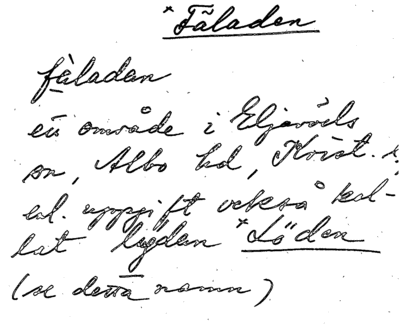 *Fäladen
fäladan
ett område i Eljaröds
sn, Albo hd, Krist. l.
enl. uppgift också kal-
lat lyckan *Löden
(se detta namn)